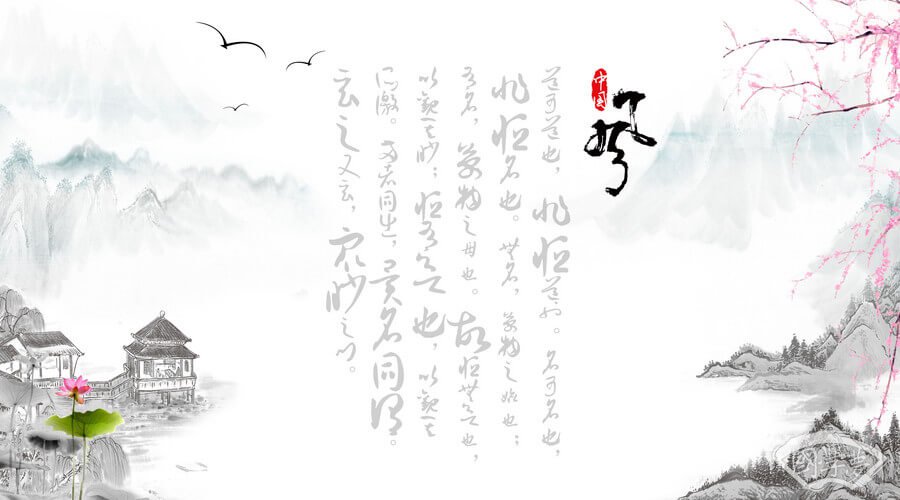 中国
风
道可道也，非恒道也。名可名也，
非恒名也。無名，萬物之始也；
有名，萬物之母也。故恒無欲也，
以觀其眇；恒有欲也，以觀其
所徼。两者同出，異名同謂。
玄之又玄，眾眇之门。